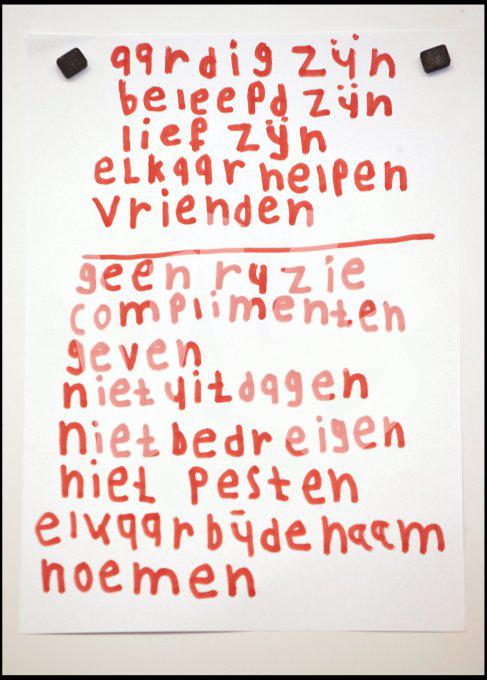 aardig zijn
beleefd zijn
lief zijn
elkaar helpen
vrienden
geen ruzie
complimenten
geven
niet uitdagen
niet bedreigen
niet pesten
elkaar bij de naam
noemen